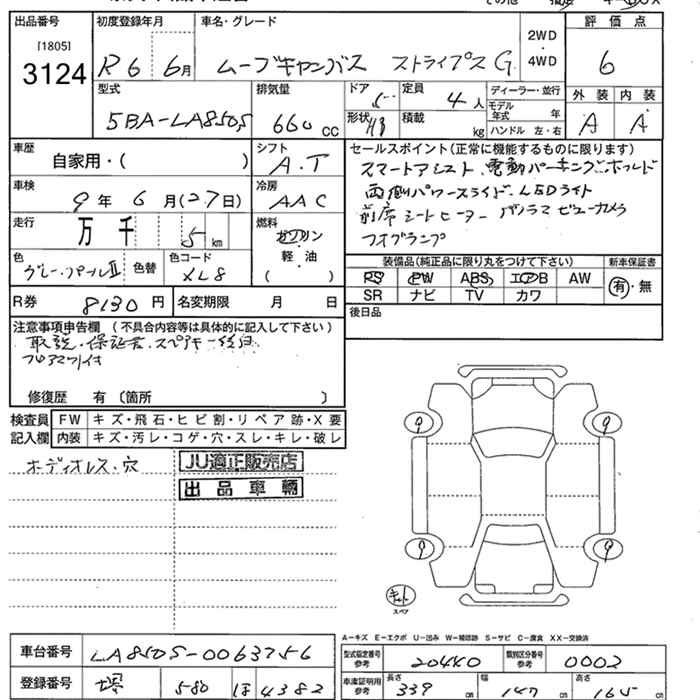 出品番号
[1805]
3124
初度登録年月
R6 6月
車名・グレード
ムーブキャンバス ストライプス G
2WD
4WD
評価点
6
型式
5BA-LA850S
排気量
660 CC
ドア
5
定員
4人
形状
積載
kg
ディーラー・並行
モデル年式 年
ハンドル 左・右
外装
内装
A
A
車歴
自家用・( )
シフト
A.T
セールスポイント(正常に機能するものに限ります)
スマートアシスト、電動パーキングホールド
両側パワースライド、LEDライト
前席シートヒーター パノラマビューカメラ
フォグランプ
車検
9年 6月(27日)
冷房
AAC
走行
万 千
5 km
燃料
ガソリン
軽・油
( )
色
グレー・パールII
色替
色コード
XL8
装備品(純正品に限り丸をつけて下さい)
新車保証書
PS PW ABS エアB AW
有・無
SR ナビ TV カワ
R券
8130 円
名変期限 月 日
後日品
注意事項申告欄 (不具合内容等は具体的に記入して下さい)
取説・保証書・スペアキー
フロアマット付
修復歴 有〔箇所 〕
検査員
記入欄
FW キズ・飛石・ヒビ割・リペア跡・X要
内装 キズ・汚レ・コゲ・穴・スレ・キレ・破レ
ボディオレス・穴
JU適正販売店
出品車輌
9
9
9
9
キット
スペア
A-キズ E-エクボ U-凹み W-補修跡 S-サビ C-腐食 XX-交換済
車台番号
LA850S-0063756
型式指定番号
参考
20440
類別区分番号
参考
0002
登録番号
堺 580 ほ 4382
車庫証明用
参考
長さ 339 cm
幅 147 cm
高さ 165 cm